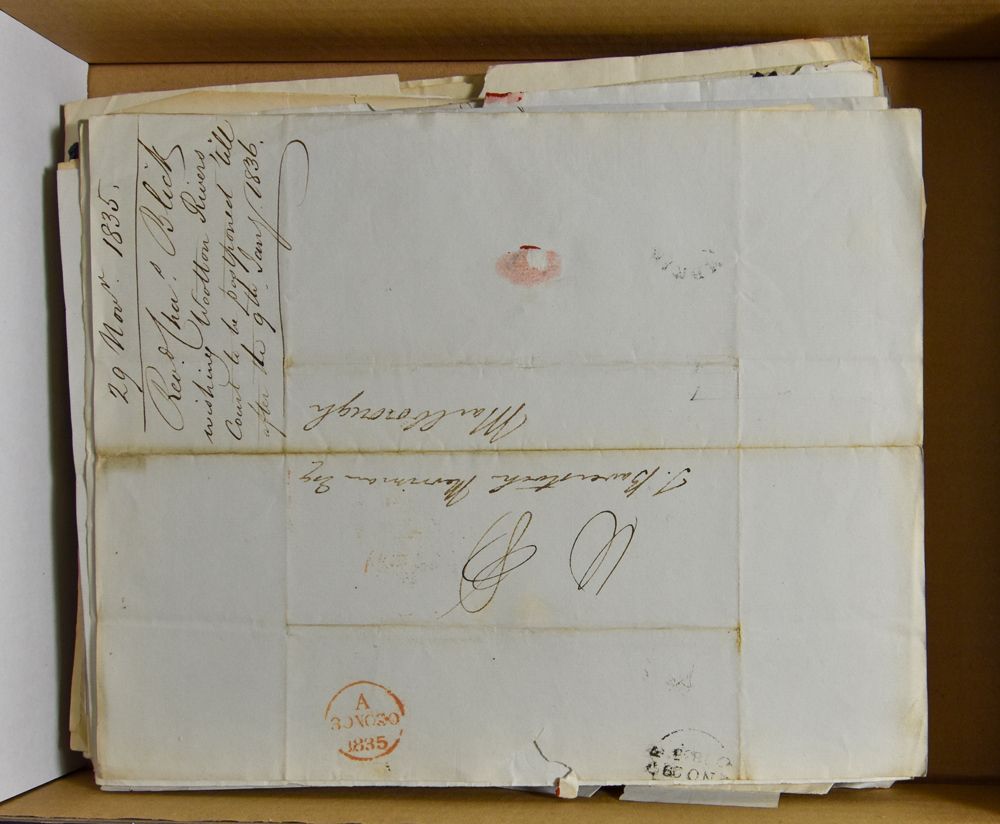 29 Novr. 1835.
Revd. Chas. Blick
wishing Wootton Rivers
Court to be postponed till
after the 9th Jany. 1836.
T. Baverstock Merriman Esq
Marlborough
A
30NO30
1835